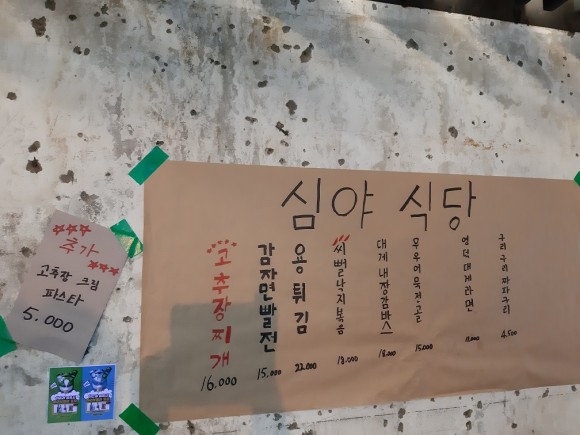 심야 식당
고추장찌개
16.000
감자면빨전
15.000
용튀김
22.000
씨뻘낙지볶음
18.000
대게내장감바스
18.000
후루어묵전골
15.000
영덕대게라면
12.000
구리구리짜파구리
4.500
추가
고추장 크림
파스타
5.000